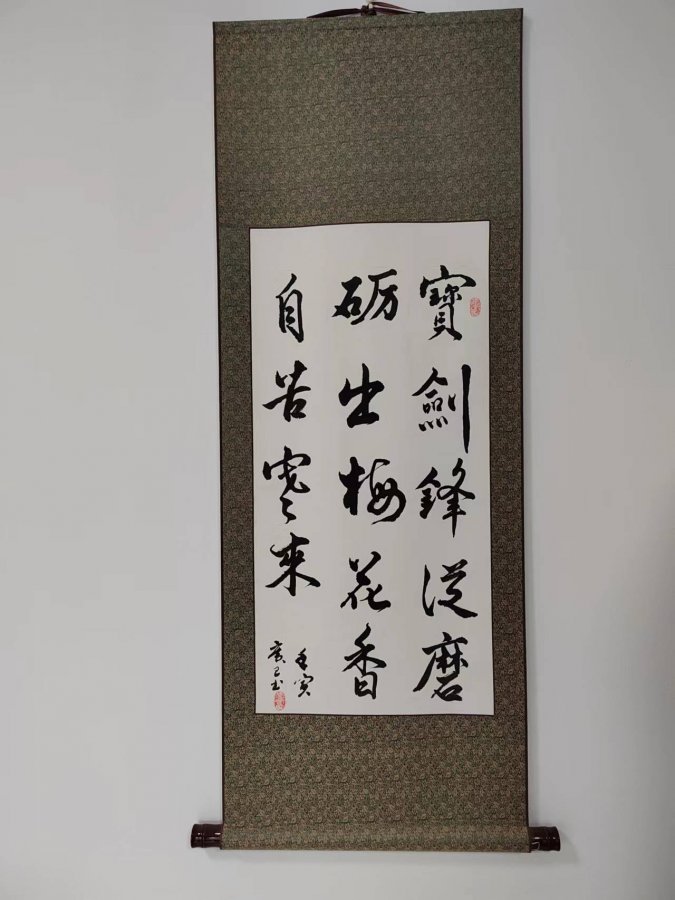 寶劍鋒從磨
砺出梅花香
自苦寒來
壬寅